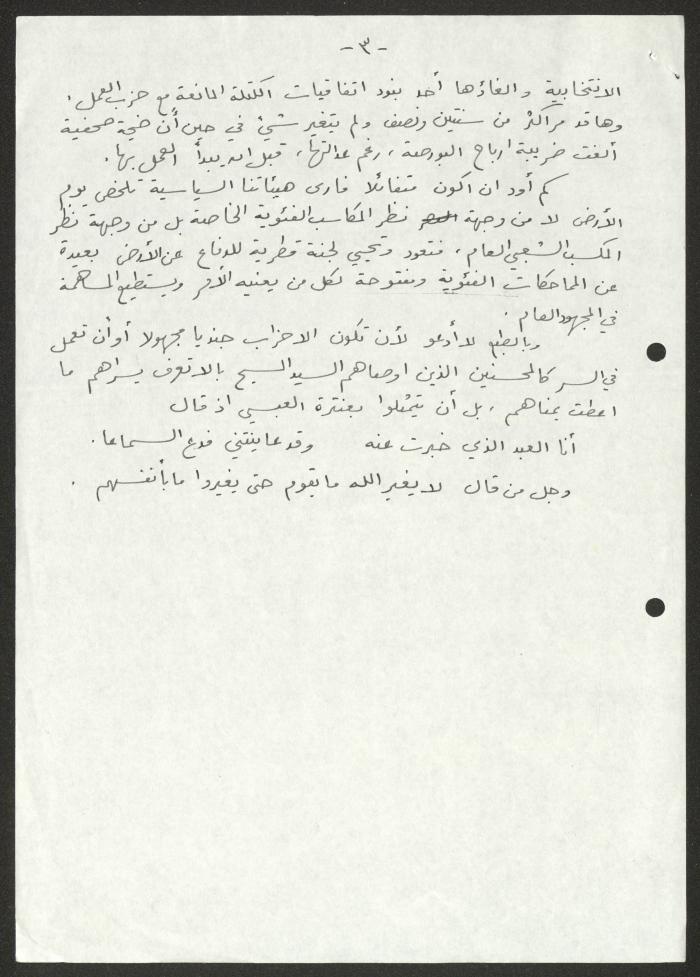 -٣-
الانتخابية والغاؤها أحد بنود اتفاقيات الكتلة المانعة مع حزب العمل.
وها قد مر اكثر من سنتين ونصف ولم يتغير شيئ في حين أن ضجة صحفية
ألغت ضريبة ارباح البورصة، رغم عدالتها، قبل ان يبدأ العمل بها.
كم أود ان اكون متفائلا فارى هيئاتنا السياسية تلخص يوم
الأرض لا من وجهة نظر المكاسب الفئوية الخاصة بل من وجهة نظر
المكسب الشعبي العام، فتعود وتحيي لجنة قطرية للدفاع عن الأرض بعيدة
عن المماحكات الفئوية ومفتوحة لكل من يعنيه الأمر ويستطيع المساهمة
في المجهود العام.
وبالطبع لا أدعو لأن تكون الاحزاب جنديا مجهولا أو أن تعمل
في السر كالمحسنين الذين اوصاهم السيد المسيح بالا تعرف يسراهم ما
اعطت يمناهم، بل أن يتمثلوا بعنترة العبسي اذ قال
أنا العبد الذي خبرت عنه وقد عاينتني فدع السماعا.
وجل من قال لا يغير الله ما بقوم حتى يغيروا ما بأنفسهم.